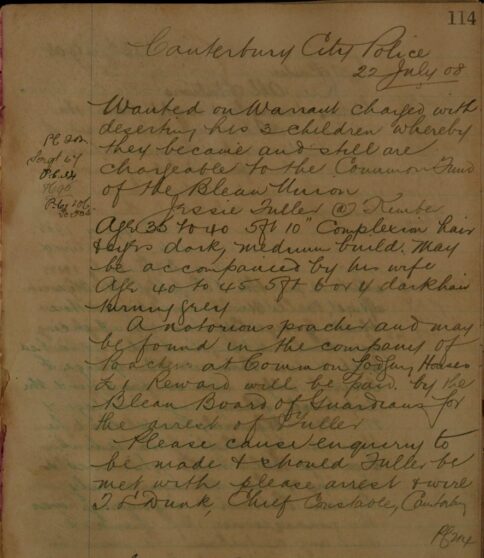 114
Canterbury City Police
22 July 08
Wanted on Warrant charged with
deserting his 3 children whereby
they became and still are
chargeable to the Common Fund
of the Blean Union
Jessie Fuller @ Kimber
Age 35 to 40 5ft 10" Complexion hair
& eyes dark, medium build. May
be accompanied by his wife
Age 40 to 45 5ft 6 or 7 dark hair
turning grey
A notorious poacher and may
be found in the company of
Poachers at Common Lodging Houses
£1 Reward will be paid by the
Blean Board of Guardians for
the arrest of Fuller
Please cause enquiry to
be made & should Fuller be
met with please arrest & wire
Dunk, Chief Constable, Canterbury